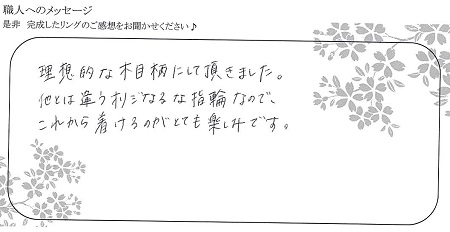 職人へのメッセージ
是非 完成したリングのご感想をお聞かせください♪
理想的な木目柄にして頂きました。
他とは違うオリジナルな指輪なので、
これから着けるのがとても楽しみです。